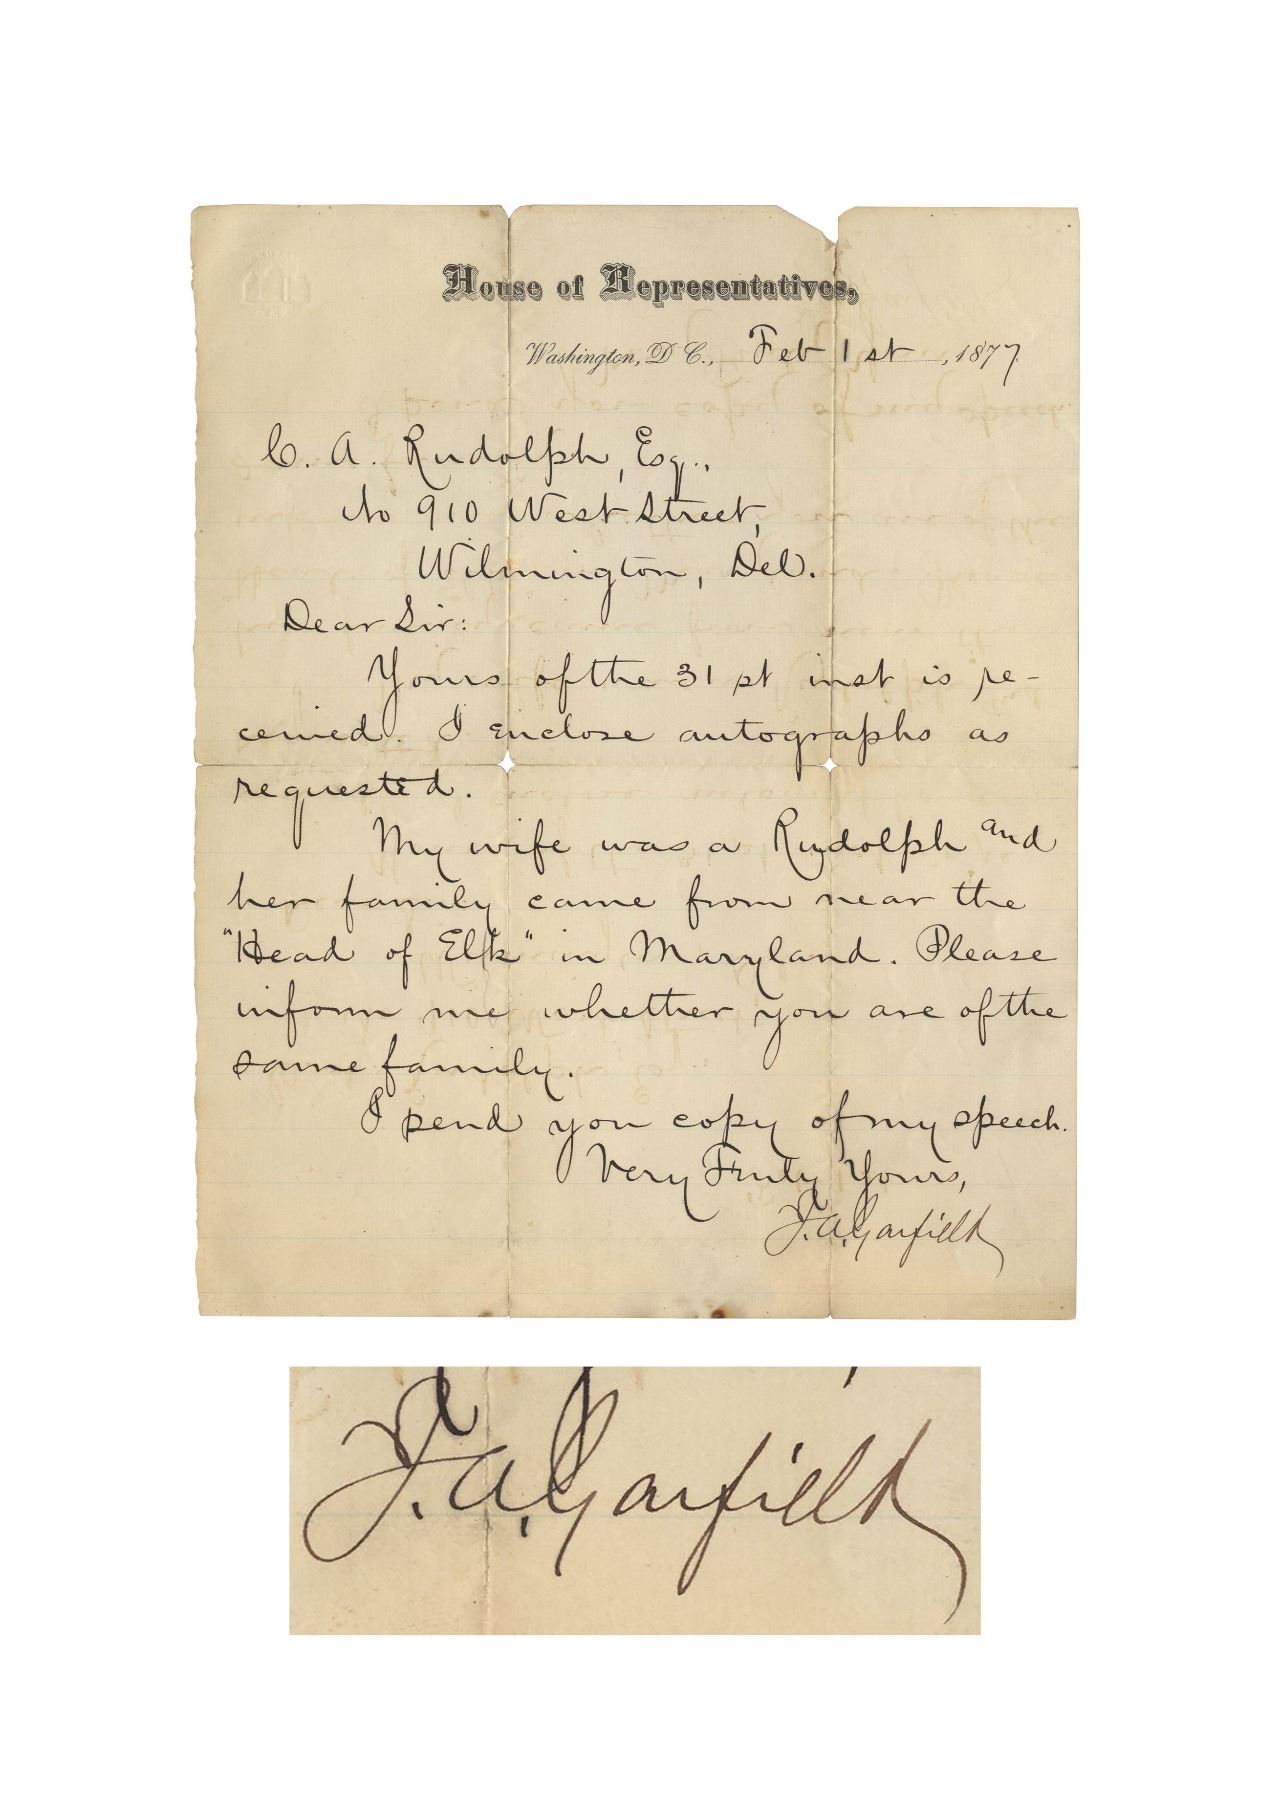 House of Representatives,
Washington, D C., Feb 1st, 1877
C. A. Rudolph, Esq.,
No 910 West Street,
Wilmington, Del.
Dear Sir:
Yours of the 31st inst is re-
ceived. I enclose autographs as
requested.
My wife was a Rudolph and
her family came from near the
"Head of Elk" in Maryland. Please
inform me whether you are of the
same family.
I send you copy of my speech.
Very Truly Yours,
J. A. Garfield
J. A. Garfield